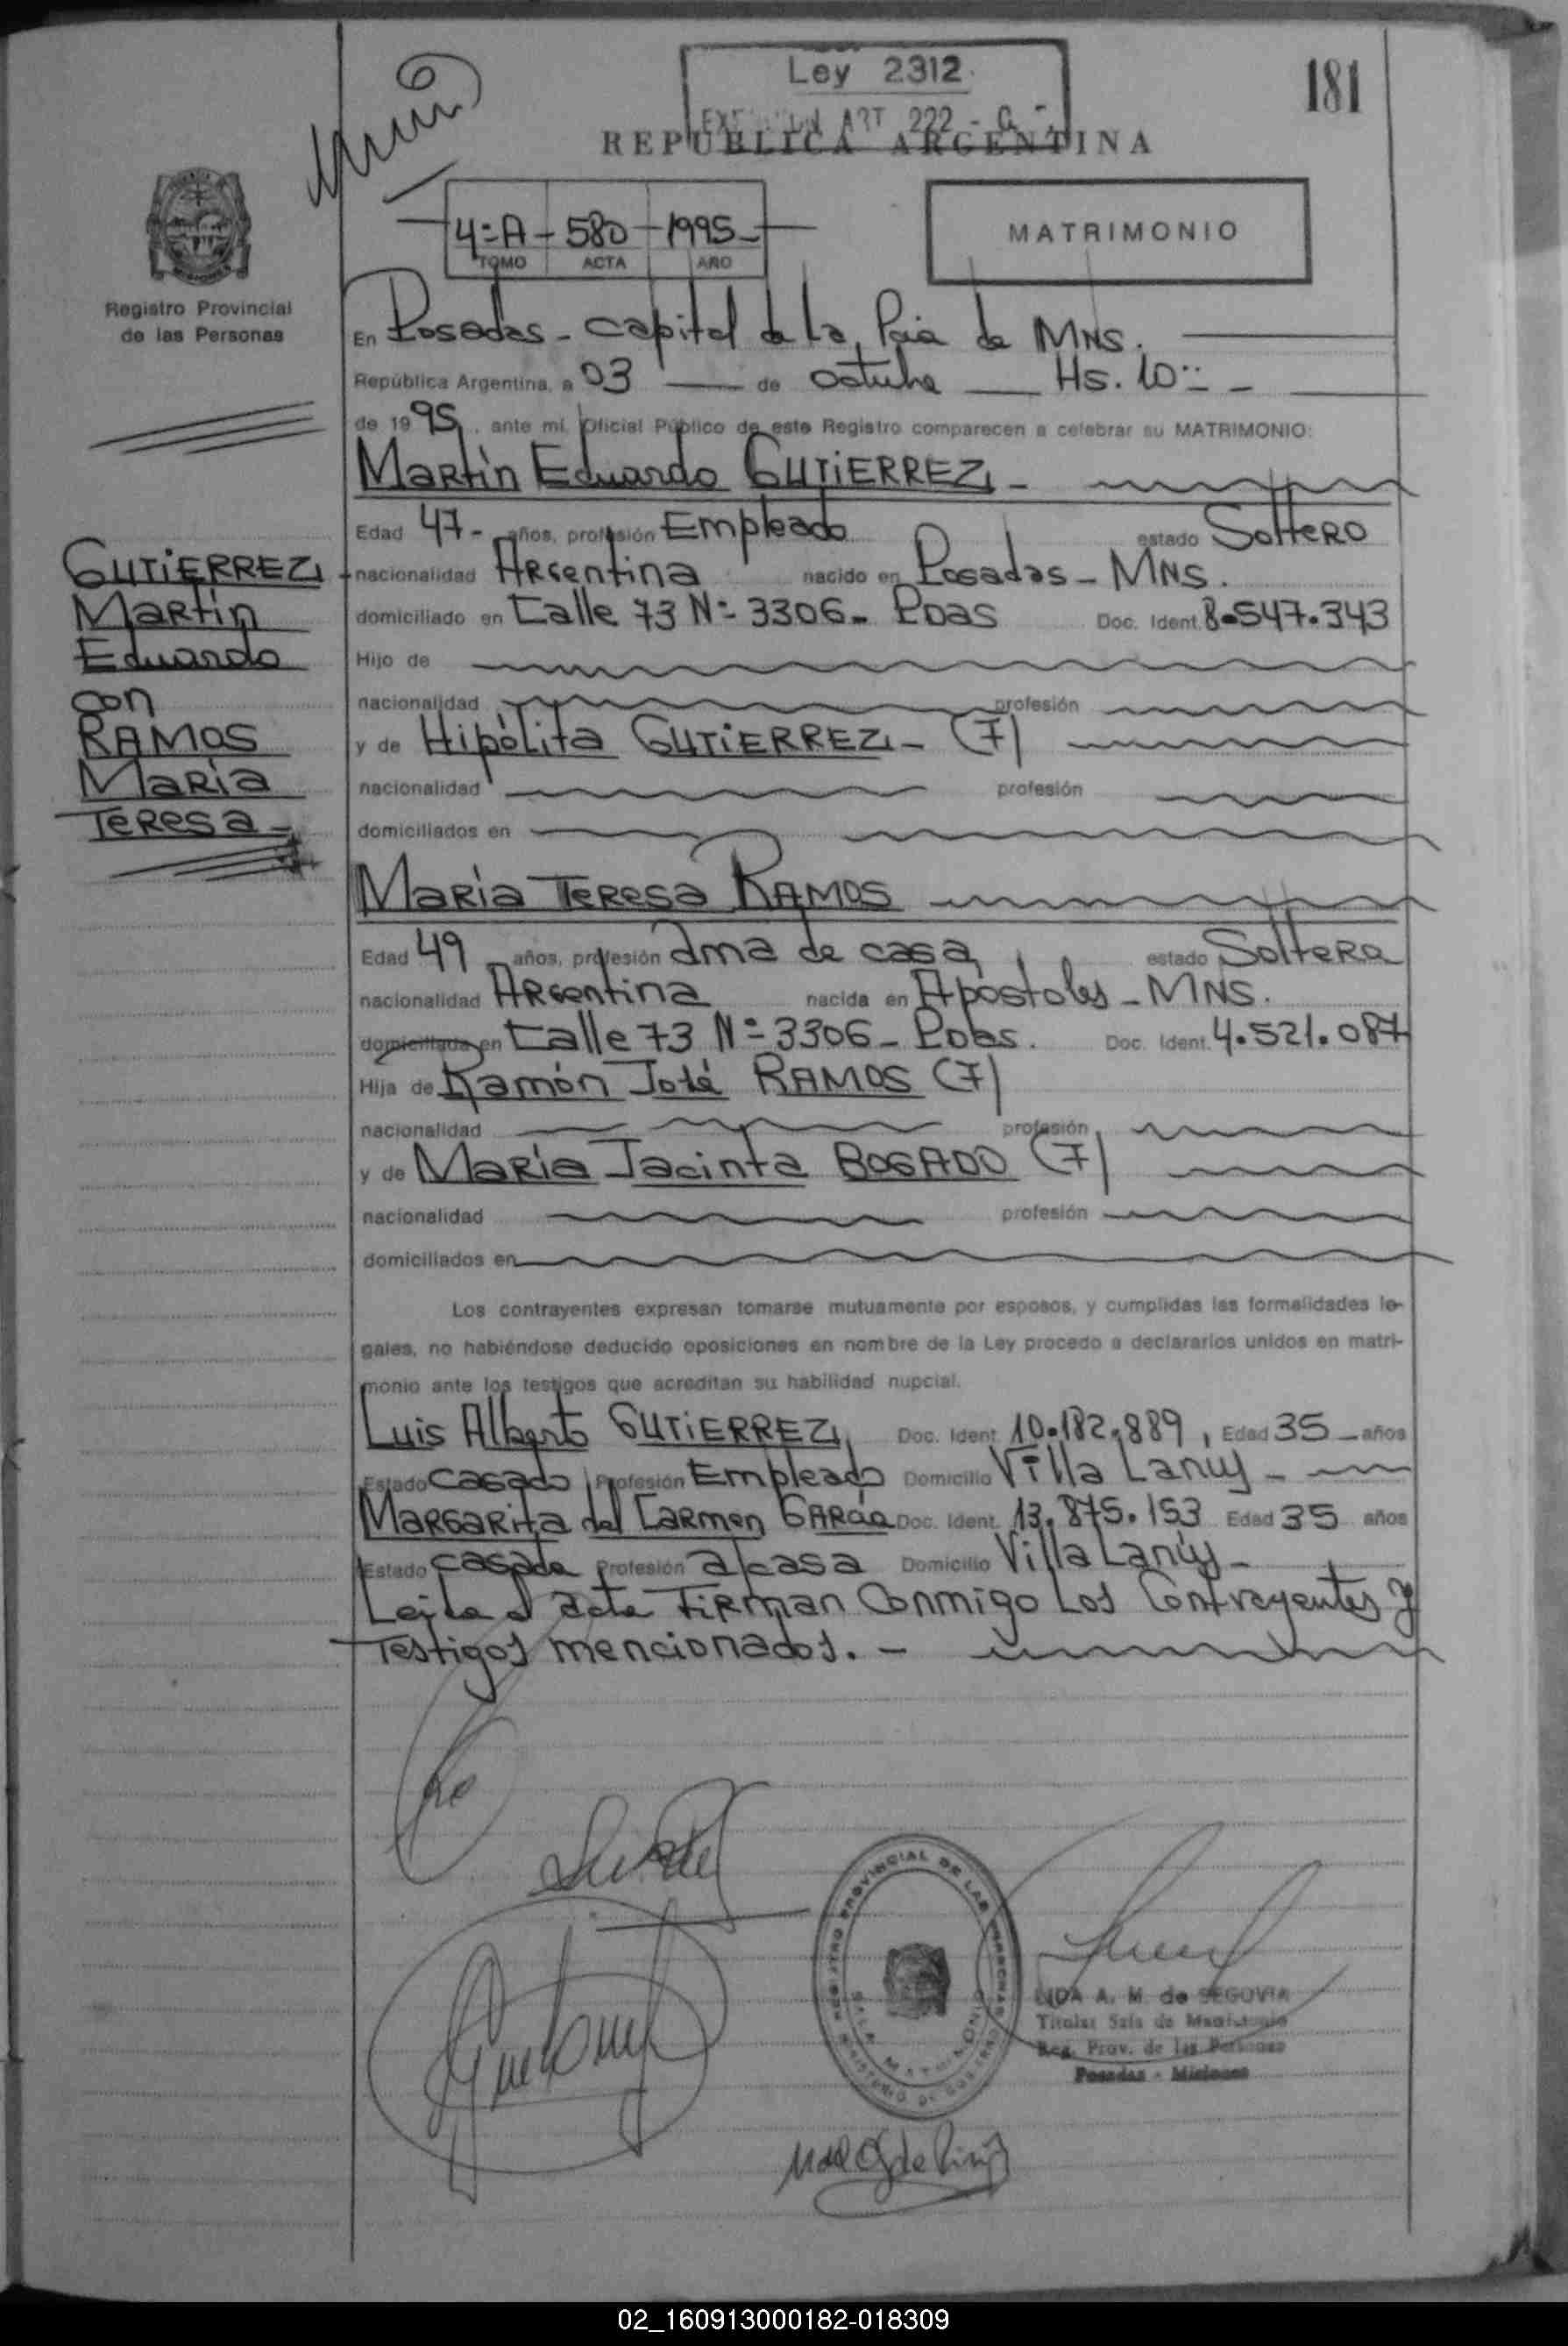 Ley 2312
ART 222 - 
181
REPUBLICA ARGENTINA
4=A - 580 - 1995 -
TOMO ACTA AÑO
MATRIMONIO
Registro Provincial
de las Personas
En Posadas - Capital de la Pcia de MNS.
República Argentina, a 03 de octubre Hs. 10
de 1995, ante mí, Oficial Público de este Registro comparecen a celebrar su MATRIMONIO:
Martín Eduardo GUTIERREZ -
Edad 47 - años, profesión Empleado estado Soltero
nacionalidad Argentina nacido en Posadas - MNS.
domiciliado en Calle 73 N= 3306 - Pdas Doc. Ident. 8.547.343
Hijo de
nacionalidad profesión
y de Hipólita GUTIERREZ - (7)
nacionalidad profesión
domiciliados en
GUTIERREZ
Martín
Eduardo
con
RAMOS
María
Teresa -
María Teresa RAMOS
Edad 49 años, profesión ama de casa estado Soltera
nacionalidad Argentina nacida en Apóstoles - MNS.
domiciliada en Calle 73 N= 3306 - Pdas. Doc. Ident. 4.521.087
Hija de Ramón José RAMOS (7)
nacionalidad profesión
y de María Jacinta BOGADO (7)
nacionalidad profesión
domiciliados en
Los contrayentes expresan tomarse mutuamente por esposos, y cumplidas las formalidades le-
gales, no habiéndose deducido oposiciones en nombre de la Ley procedo a declararlos unidos en matri-
monio ante los testigos que acreditan su habilidad nupcial.
Luis Alberto GUTIERREZ, Doc. Ident. 10.182.889, Edad 35 - años
Estado casado Profesión Empleado Domicilio Villa Lanús -
Margarita del Carmen GARCÍA Doc. Ident. 13.875.153 Edad 35 años
Estado casada Profesión a/casa Domicilio Villa Lanús -
Leída el acta Firman Conmigo Los Contrayentes y
Testigos mencionados. -
REGISTRO PROVINCIAL DE LAS PERSONAS
SALA MATRIMONIO
MINISTERIO DE GOBIERNO
A. M. de SEGOVIA
Titular Sala de Matrimonio
Reg. Prov. de las Personas
Posadas - Misiones
02_160913000182-018309